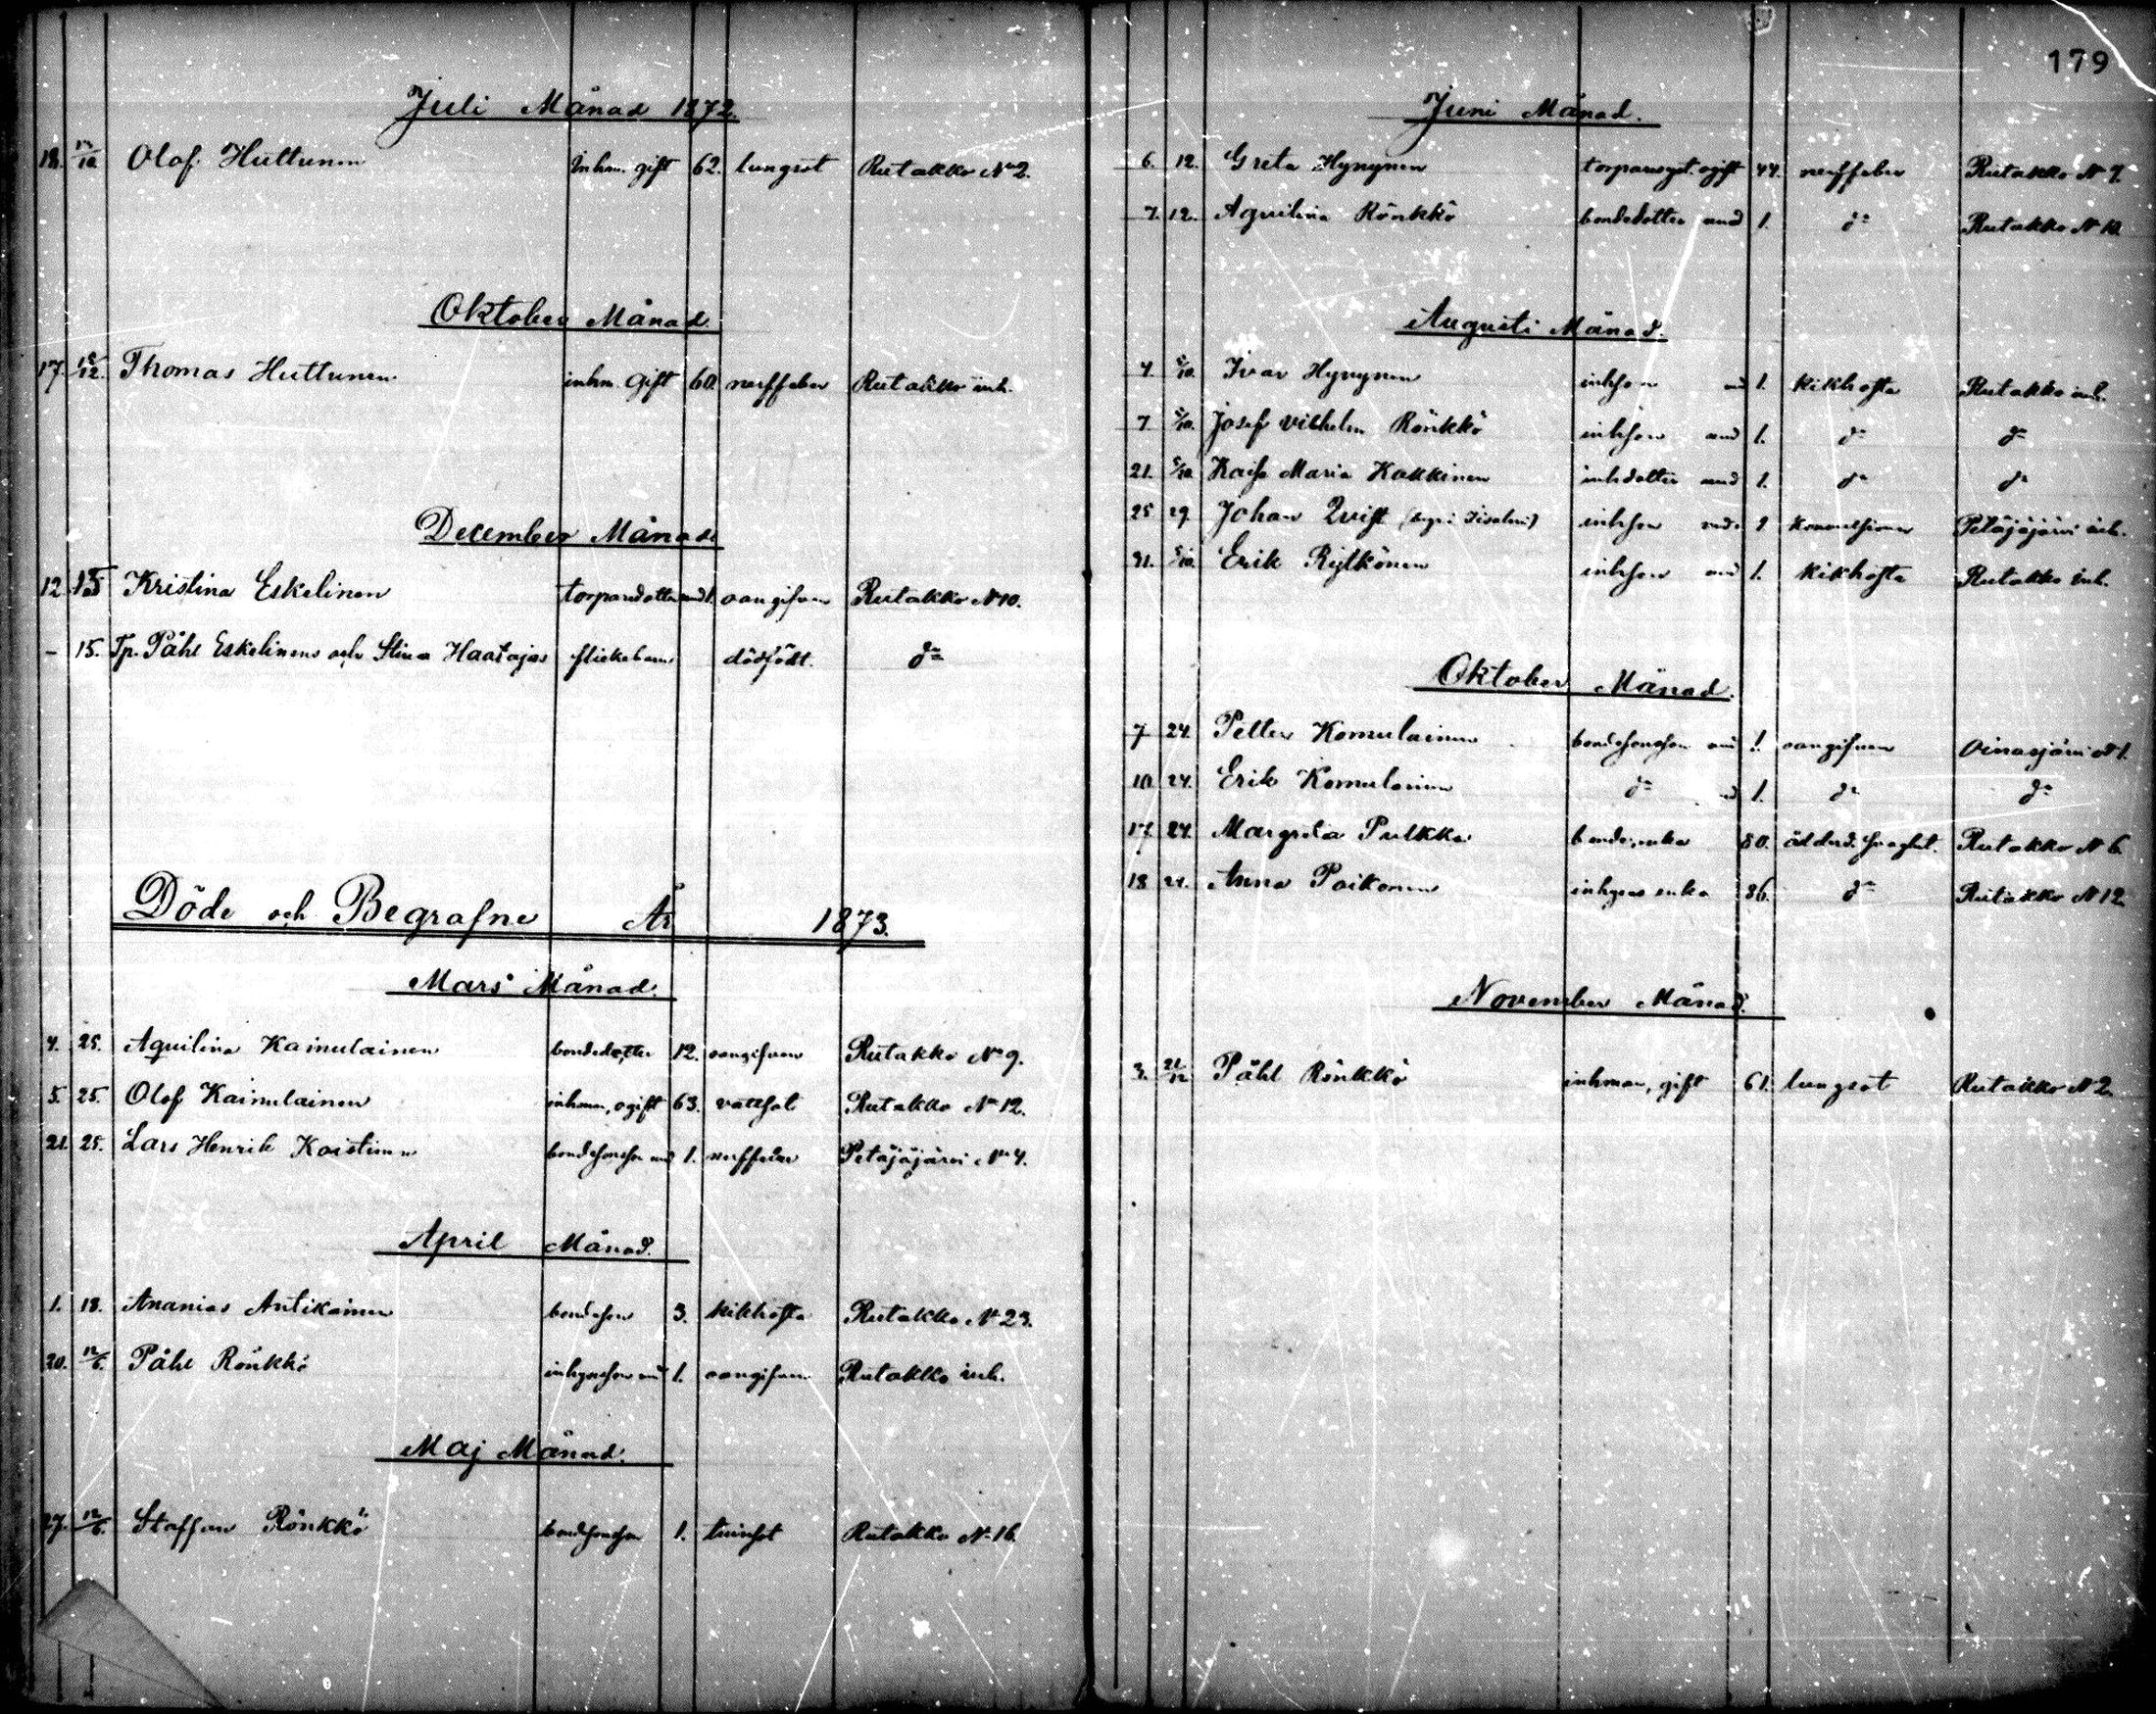 Juli Månad 1872.
18. 13/10 Olof Huttunen inhm. gift 62. lungsot Rutakko No 2.
Oktober Månad
17. 15/12. Thomas Huttunen inhm. gift 60. nerffeber Rutakko inh.
December Månad
12 15 Kristina Eskelinen torparedotter und 1. oangifven Rutakko No 10.
- 15. Tp. Påhl Eskelinens och Stina Haatajas flickebarn dödfödt. do
Döde och Begrafne År 1873.
Mars Månad.
4. 25. Aquilina Kainulainen bondedotter 12. oangifven Rutakko No 9.
5. 25. Olof Kainulainen inhman, ogift 63. vattsot Rutakko No 12.
21. 25. Lars Henrik Koistinen bondesonson und 1. nerffeber Petäjäjärvi No 4.
April Månad.
1. 18. Ananias Antikainen bondeson 3. kikhosta Rutakko No 23.
20. 12/6. Påhl Rönkkö inhyseson und 1. oangifven Rutakko inh.
Maj Månad.
27. 12/6. Staffan Rönkkö bondsonson 1. tvinsot Rutakko No 16.
179
Juni Månad.
6. 12. Greta Hynynen ogift 44. nerffeber Rutakko No 7.
7. 12. Aquilina Rönkkö bondedotter und 1. do Rutakko No 10
Augusti Månad.
4. 5/10. Ivar Hynynen inhson und 1. kikhosta Rutakko inh.
7. 5/10. Josef Vilhelm Rönkkö inhson und 1. do do
21. 5/10 Kaisa Maria Kokkinen inhdotter und 1. do do
25 29. Johan Qvist (begr. i Iisalmi) inhson und. 1 konvulsioner Petäjäjärvi inh.
31. 5/10. Erik Rytkönen inhson und 1. kikhosta Rutakko inh.
Oktober Månad.
7 24. Petter Komulainen bondesonson und 1. oangifven Oinasjärvi No 1.
10. 24. Erik Komulainen do und 1. do do
17. 24. Margreta Pulkka bondeenka 80. ålderd. svaghet. Rutakko No 6.
18 24. Anna Poikonen inhyses enka 86. do Rutakko No 12
November Månad.
3. 21/12 Påhl Rönkkö inhman, gift 61. lungsot Rutakko No 2.